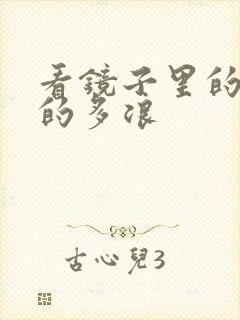 看鏡子里的
的多浪
古心兒3